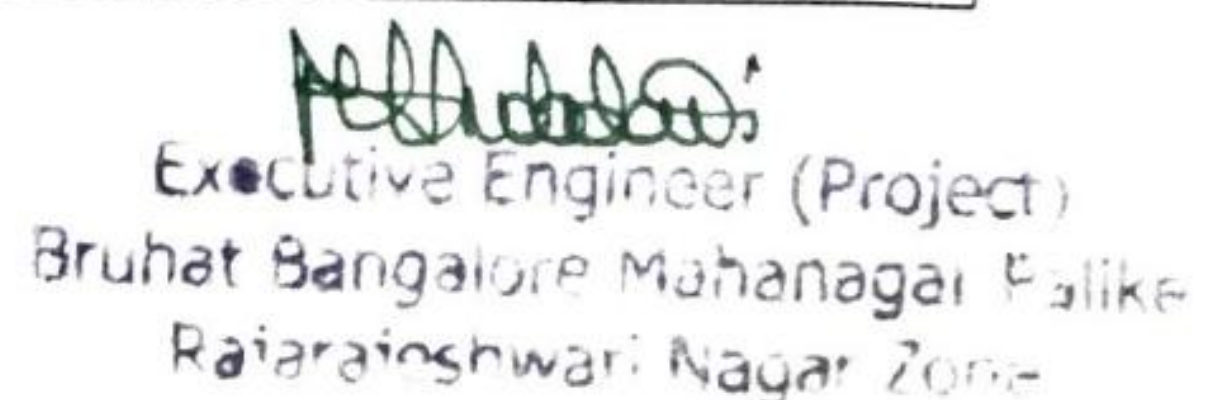 Executive Engineer (Project)
Bruhat Bangalore Mahanagar Palike
Rajarajeshwari Nagar Zone